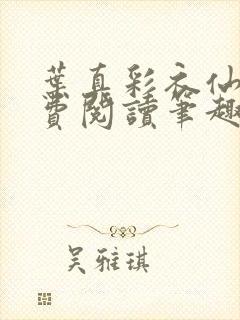 葉真彩衣仙
費閱讀筆趣
吳雅琪